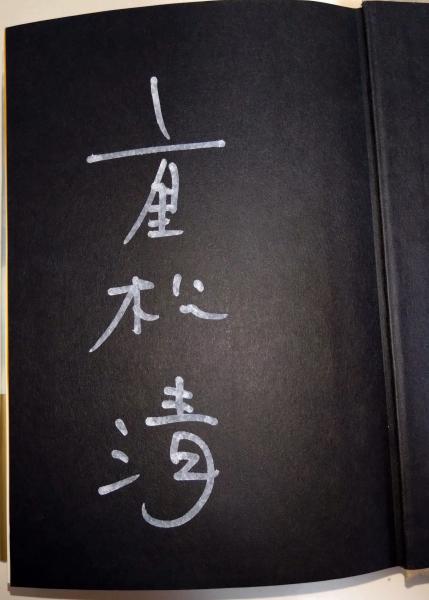 重松清